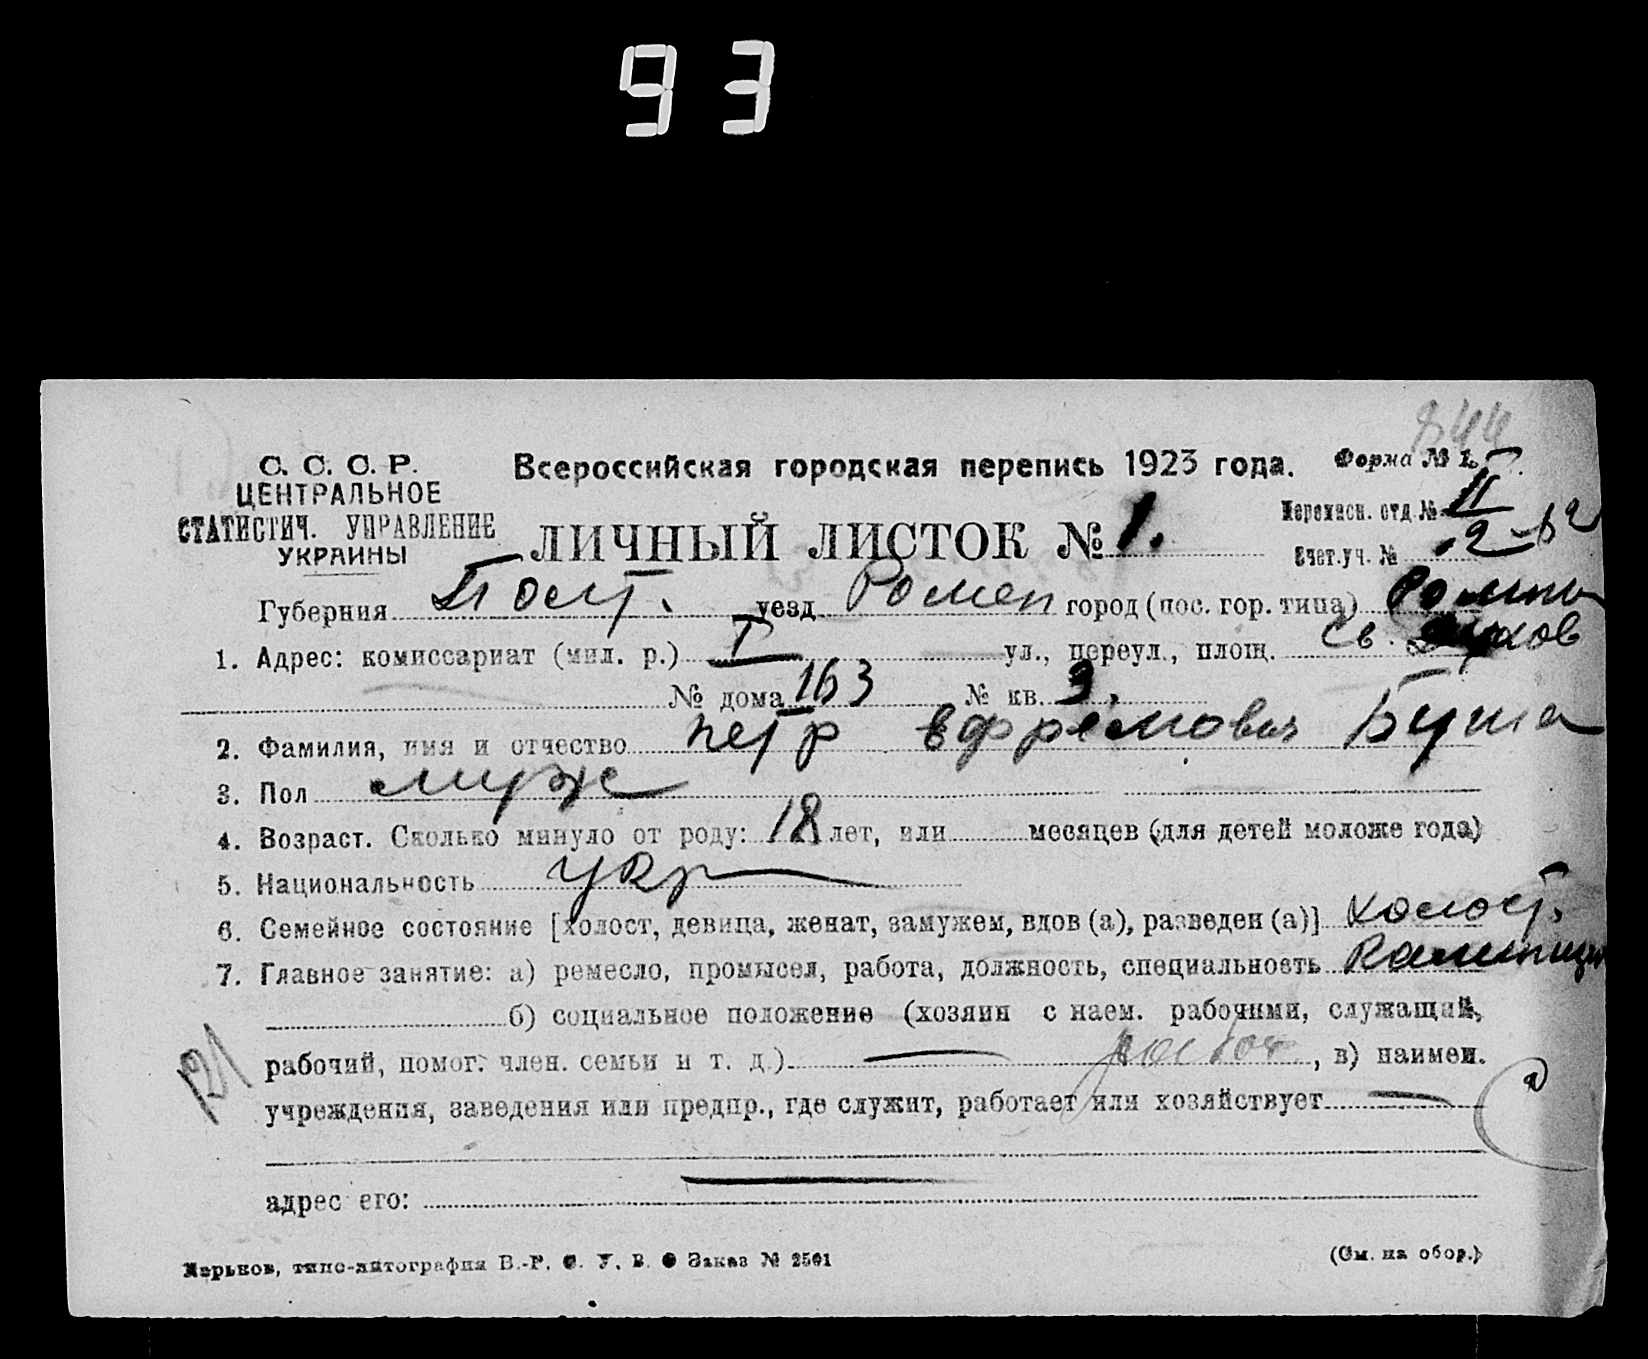 93
844
С. С. С. Р.
ЦЕНТРАЛЬНОЕ
СТАТИСТИЧ. УПРАВЛЕНИЕ
УКРАИНЫ
Всероссийская городская перепись 1923 года. Форма № 1.
Переписн. отд. № II
ЛИЧНЫЙ ЛИСТОК № 1.
Счет.уч. № 2
Губерния Полт. уезд Ромен город (пос. гор. типа) Ромны
1. Адрес: комиссариат (мил. р.) I ул., переул., площ. Св. Духов
№ дома 163 № кв. 3.
2. Фамилия, имя и отчество Петр Ефремович Буша
3. Пол муж
4. Возраст. Сколько минуло от роду: 18 лет, или месяцев (для детей моложе года)
5. Национальность укр
6. Семейное состояние [холост, девица, женат, замужем, вдов (а), разведен (а)] холост.
7. Главное занятие: а) ремесло, промысел, работа, должность, специальность
б) социальное положение (хозяин с наем. рабочими, служащий,
рабочий, помог. член. семьи и т. д.) , в) наимен.
учреждения, заведения или предпр., где служит, работает или хозяйствует
адрес его:
121
Харьков, типо-литография В.-Р. С. У. В. Заказ № 2501
(См. на обор.)